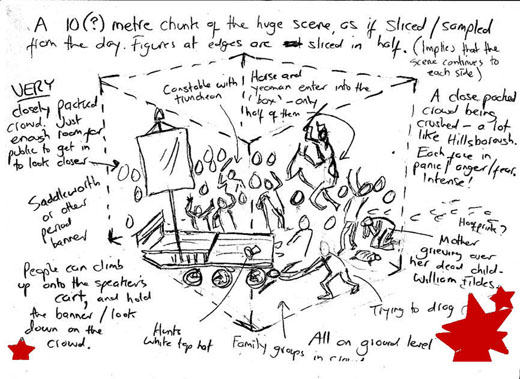 A 10(?) metre chunk of the huge scene, as if sliced/sampled
from the day. Figures at edges are sliced in half. (Implies that the
scene continues to
each side)
VERY
closely packed
crowd. Just
enough room for
public to get in
to look closer
Constable with
truncheon
Horse and
yeoman enter into the
'box' - only
half of them
A close packed
crowd being
crushed - a lot
like Hillsborough.
Each face in
panic/anger/fear.
Intense!
Saddleworth
or other
period
banner
Hoofprints?
Mother
grieving over
her dead child-
William Fildes.
People can climb
up onto the speakers
cart, and hold
the banner/look
down on the
crowd.
Hunts
White top hat
Family groups
in
Trying to drag
All on ground level